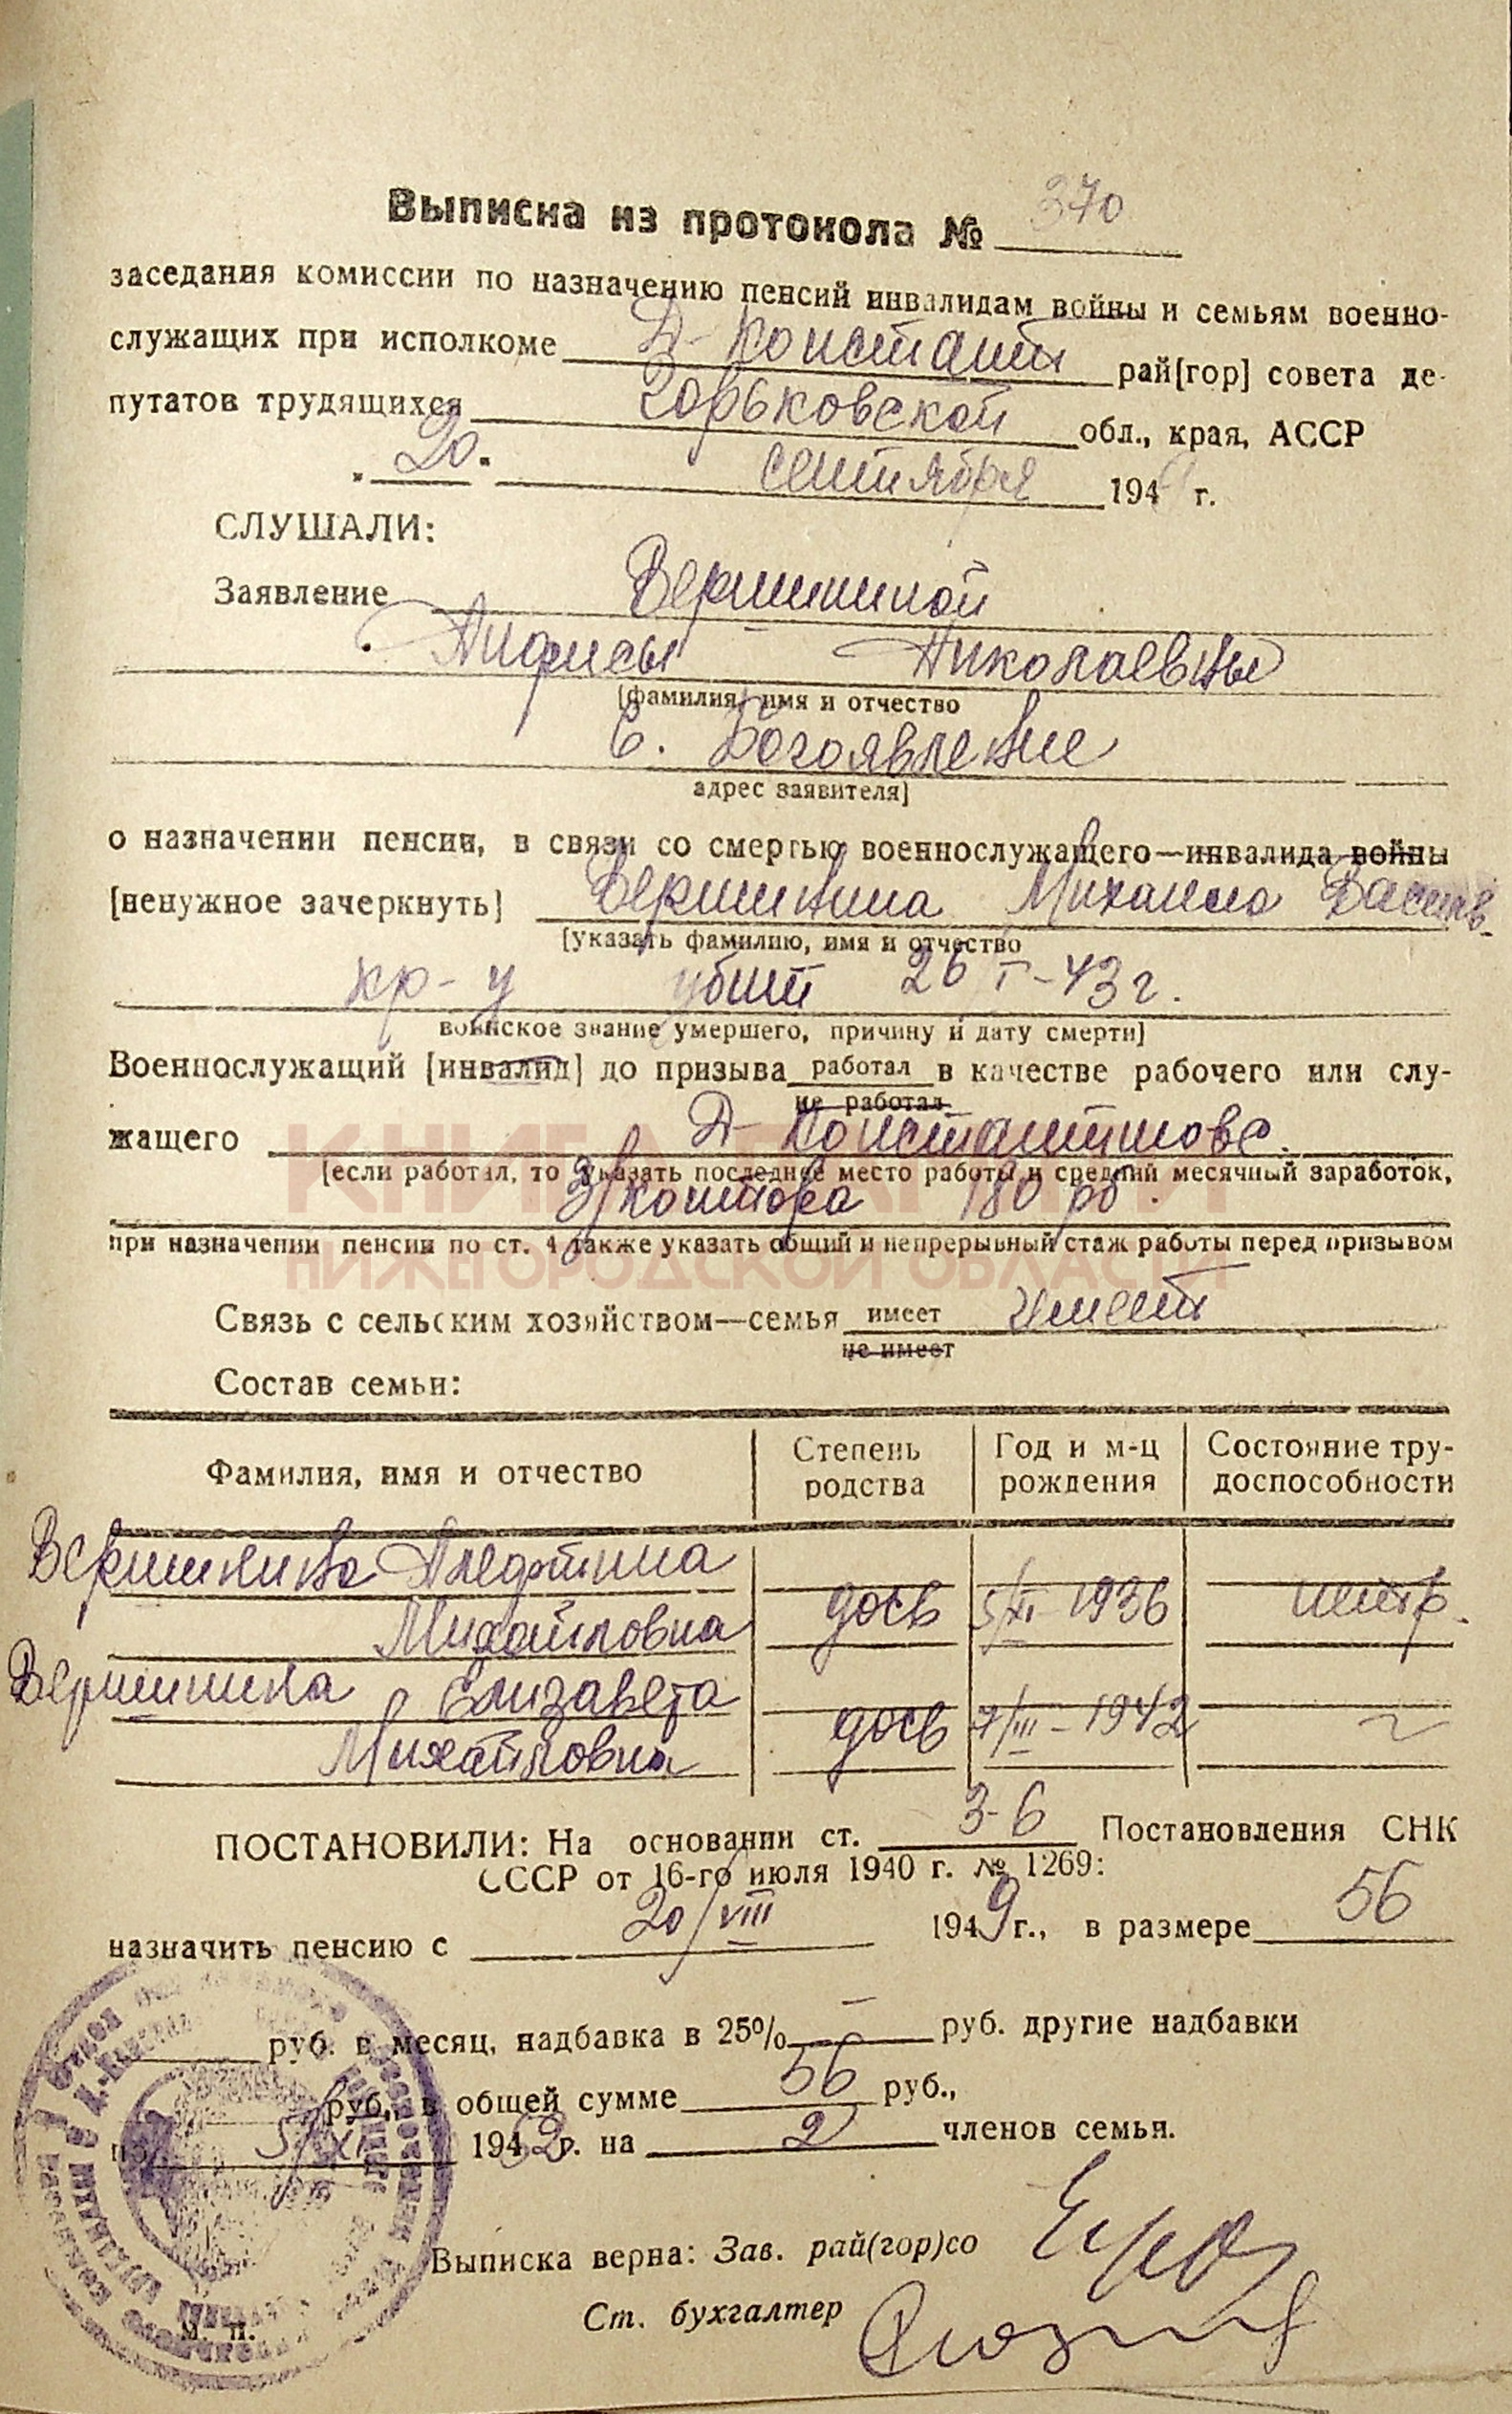 Выписка из протокола № 370
заседания комиссии по назначению пенсий инвалидам войны и семьям военно-
служащих при исполкоме Д-Констант рай[гор] совета де-
путатов трудящихся Горьковской обл., края, АССР
"20" сентября 194 г.
СЛУШАЛИ:
Заявление Вершининой
Анфисы Николаевны
[фамилия, имя и отчество
с. Богоявление
адрес заявителя]
о назначении пенсии, в связи со смертью военнослужащего—инвалида войны
[ненужное зачеркнуть] Вершинина Михаила Васильев
[указать фамилию, имя и отчество
кр-ц убит 26/I-43 г.
воинское звание умершего, причину и дату смерти]
Военнослужащий [инвалид] до призыва работал в качестве рабочего или слу-
не работал
жащего Д-Константиново.
[если работал, то указать последнее место работы и средний месячный заработок,
З/контора 180 рб.
при назначении пенсии по ст. 4 также указать общий и непрерывный стаж работы перед призывом
КНИГА ПАМЯТИ
НИЖЕГОРОДСКОЙ ОБЛАСТИ
Связь с сельским хозяйством—семья имеет имеет
не имеет
Состав семьи:
Фамилия, имя и отчество Степень родства Год и м-ц рождения Состояние тру-
доспособности
Вершинина Алефтина
Михайловна дочь 5/XI-1936 нетр.
Вершинина Елизавета
Михайловна дочь 7/III-1942 ~
ПОСТАНОВИЛИ: На основании ст. 3-6 Постановления СНК
СССР от 16-го июля 1940 г. № 1269:
назначить пенсию с 20/VIII 1949 г., в размере 56
руб. в месяц, надбавка в 25% — руб. другие надбавки
руб., в общей сумме 56 руб.,
по 5/XI 1952 г. на 2 членов семья.
Выписка верна: Зав. рай(гор)со
Ст. бухгалтер
м. п.